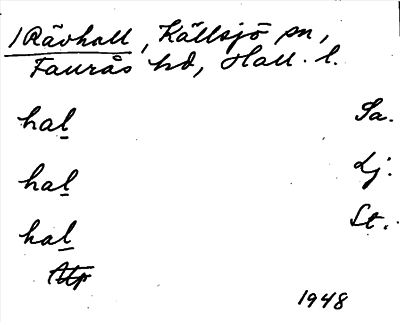 1 Rävhall, Källsjö sn,
Faurås hd, Hall. l.
hal Sa.
hal Lj.
hal St.
1948